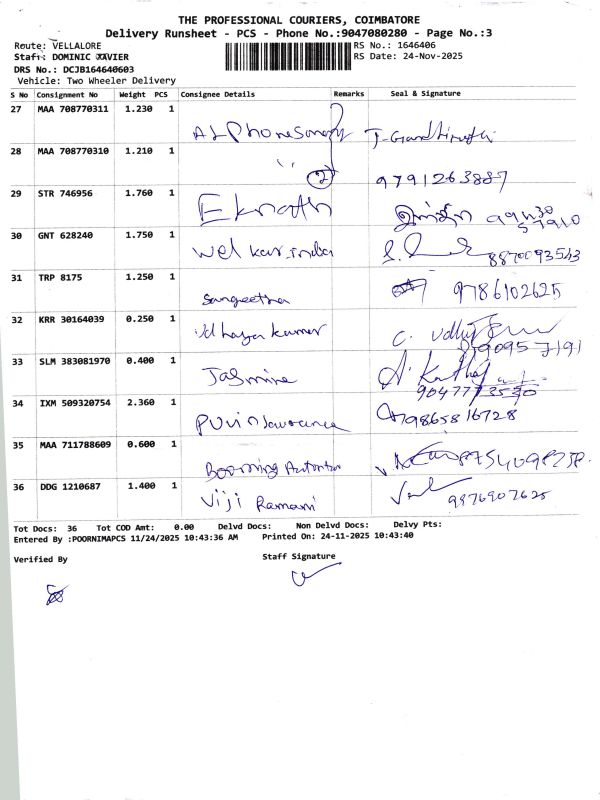 THE PROFESSIONAL COURIERS, COIMBATORE
Delivery Runsheet - PCS - Phone No.:9047080280 - Page No.:3
Route: VELLALORE RS No.: 1646406
Staff: DOMINIC XAVIER RS Date: 24-Nov-2025
DRS No.: DCJB164640603
Vehicle: Two Wheeler Delivery
S No Consignment No Weight PCS Consignee Details Remarks Seal & Signature
27 MAA 708770311 1.230 1
28 MAA 708770310 1.210 1 2 9791263887
29 STR 746956 1.760 1 Eknath
30 GNT 628240 1.750 1 8870093543
31 TRP 8175 1.250 1 Sangeetha 9786102625
32 KRR 30164039 0.250 1 Udhaya kumar
33 SLM 383081970 0.400 1 Jasmine
34 IXM 509320754 2.360 1 9865816728
35 MAA 711788609 0.600 1
36 DDG 1210687 1.400 1 Viji Ramani 9976907625
Tot Docs: 36 Tot COD Amt: 0.00 Delvd Docs: Non Delvd Docs: Delvy Pts:
Entered By :POORNIMAPCS 11/24/2025 10:43:36 AM Printed On: 24-11-2025 10:43:40
Verified By Staff Signature